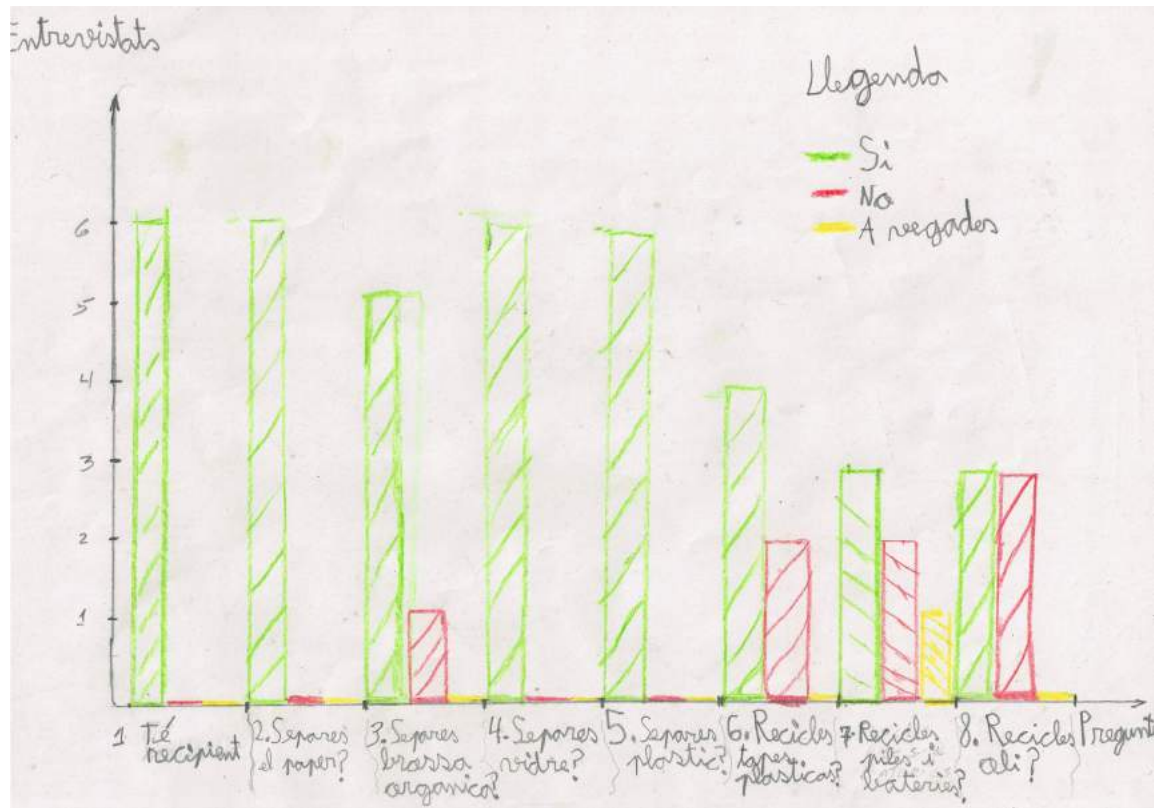 Entrevistats
Llegenda
Si
No
A vegades
6
5
4
3
2
1
1 Té
recipient
2. Separes
el paper?
3. Separes
brossa
organica?
4. Separes
vidre?
5. Separes
plastic?
6. Recicles
taps
plasticos?
7. Recicles
piles i
bateries?
8. Recicles
oli?
Pregunt